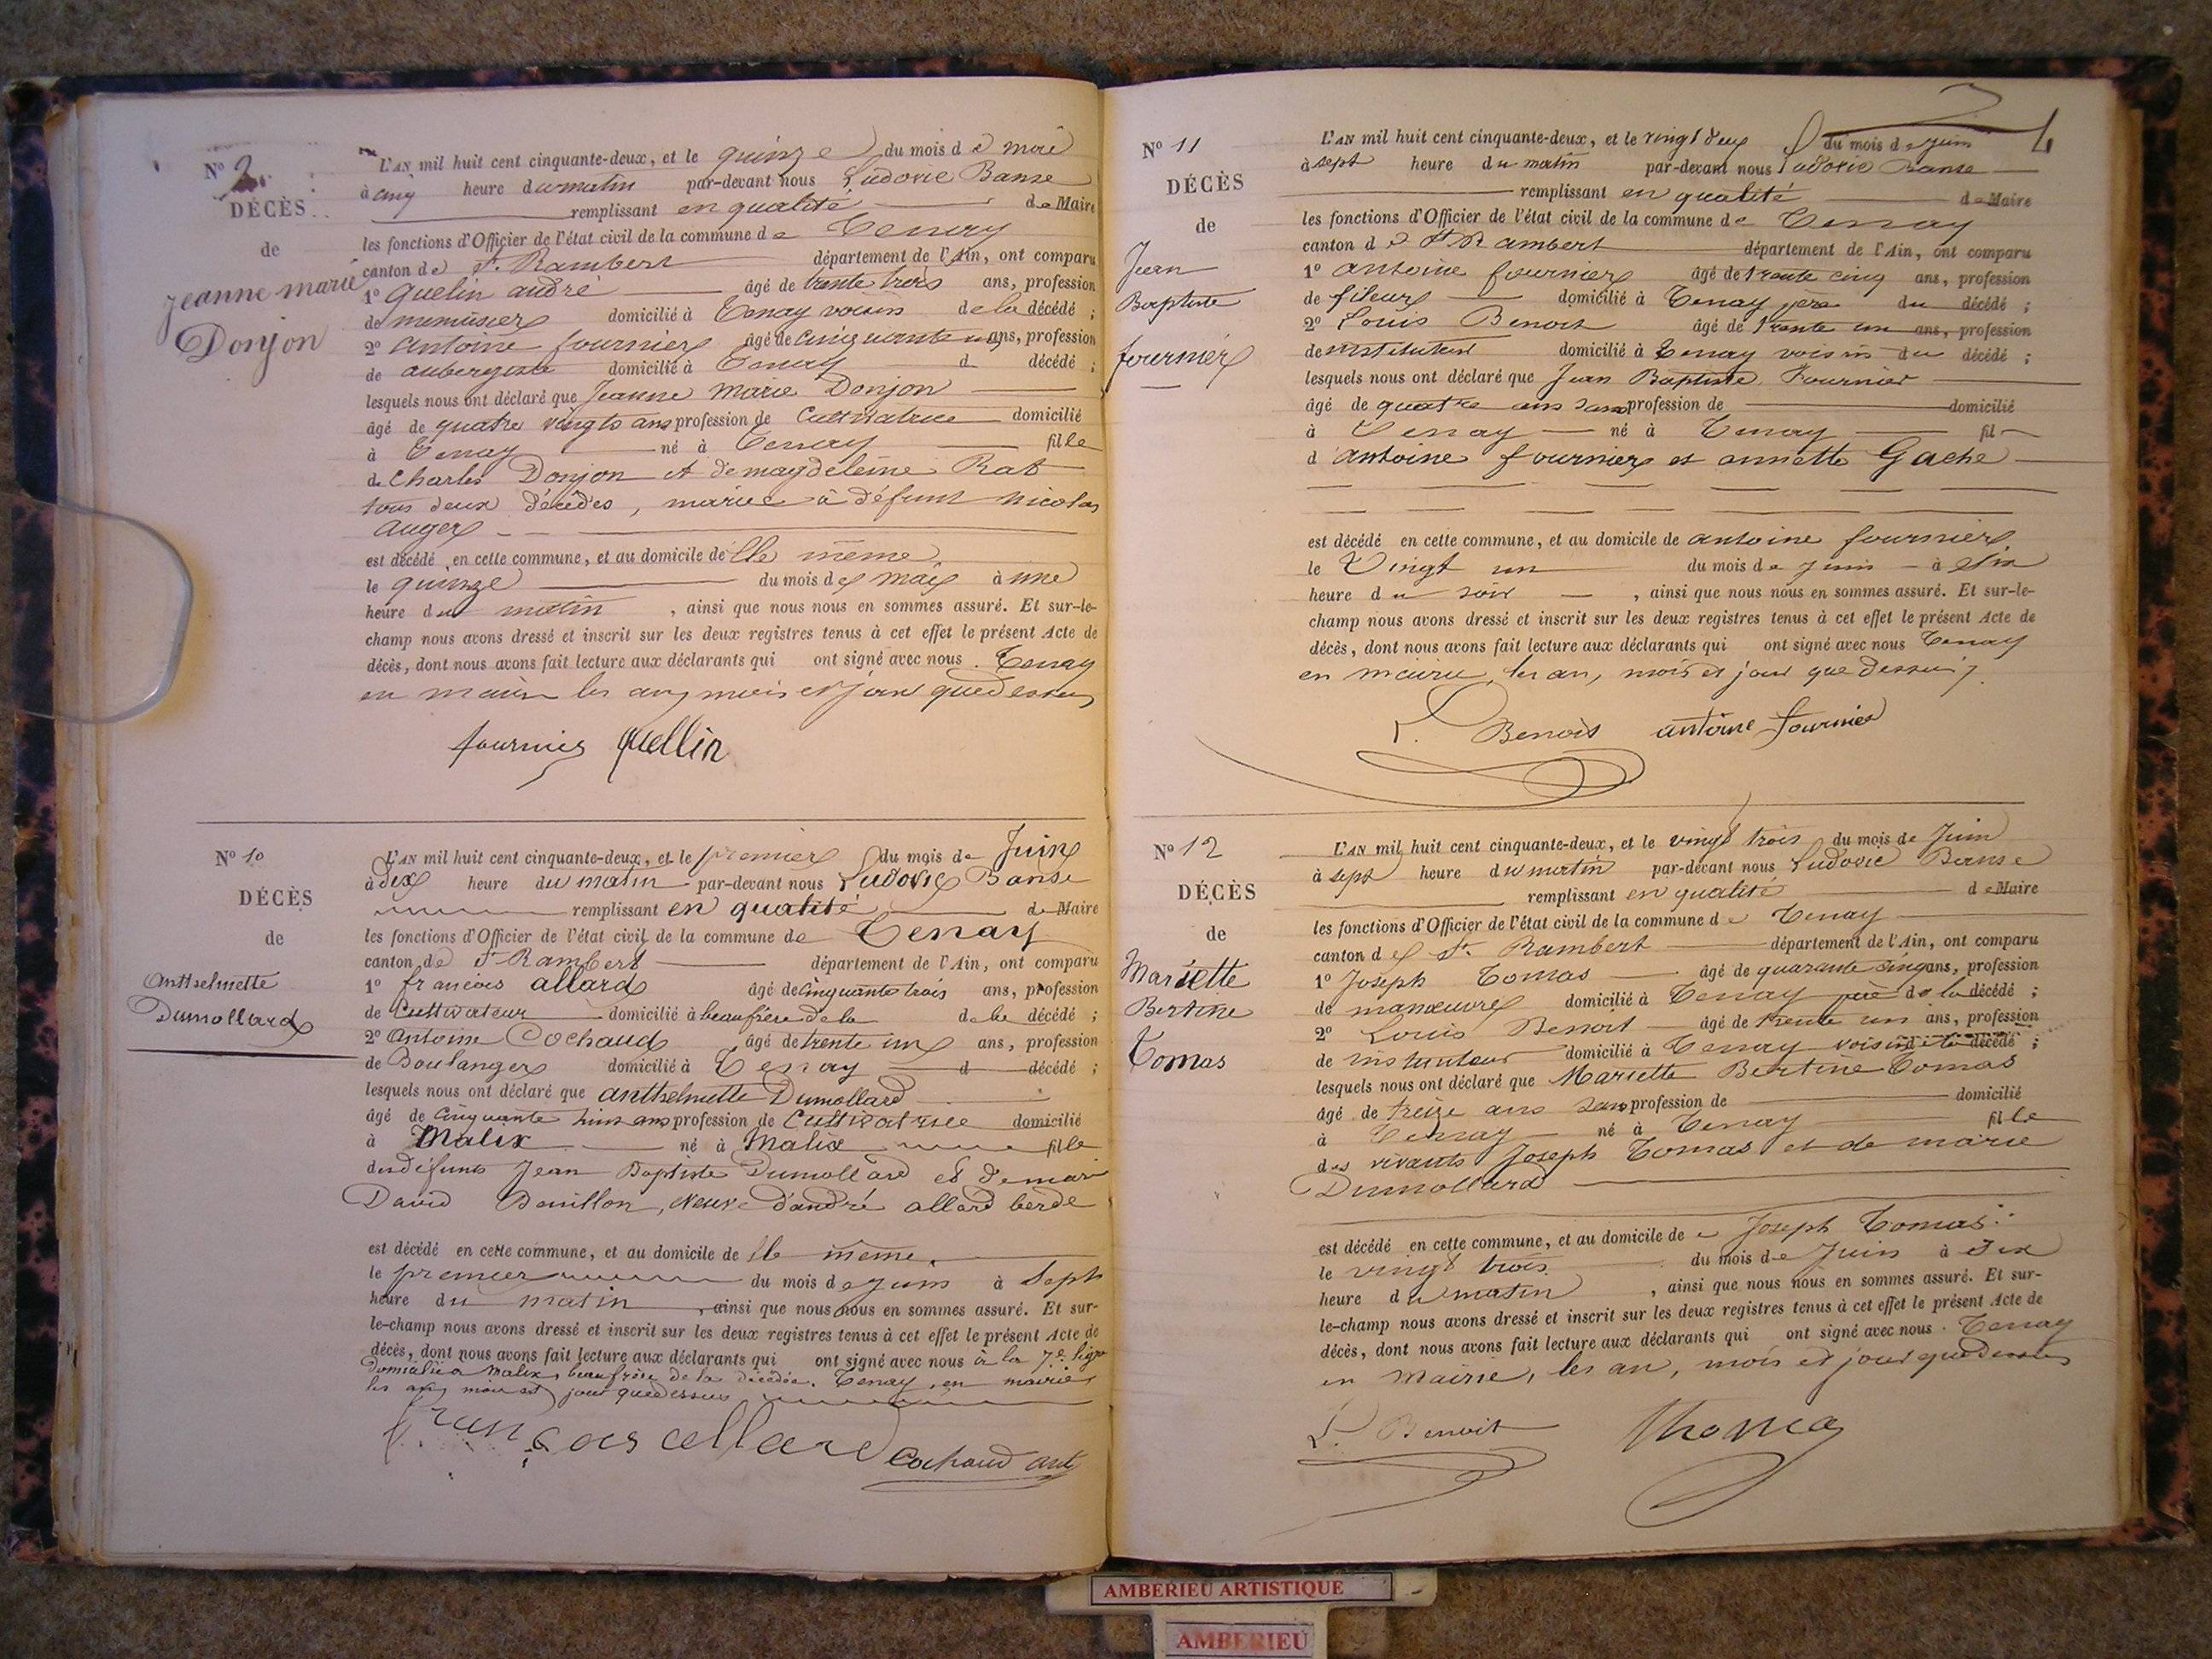 No 9
DÉCÈS
de
jeanne marie
Donjon
L'AN mil huit cent cinquante-deux, et le quinze du mois de mai
à cinq heure du matin par-devant nous Ludovic Banse
remplissant en qualité de Maire
les fonctions d'Officier de l'état civil de la commune de Tenay
canton de St. Rambert département de l'Ain, ont comparu
1o quelin andré âgé de trente trois ans, profession
de menuisier domicilié à Tenay voisin de la décédé ;
2o antoine fournier âgé de cinquante un ans, profession
de aubergiste domicilié à Tenay d décédé ;
lesquels nous ont déclaré que Jeanne Marie Donjon
âgé de quatre vingts ans profession de Cultivatrice domicilié
à Tenay né à Tenay fille
de Charles Donjon et de magdeleine Rat
tous deux décédés, mariée à défunt nicolas
auger
est décédé en cette commune, et au domicile d'elle même
le quinze du mois de mai à une
heure du matin , ainsi que nous nous en sommes assuré. Et sur-le-
champ nous avons dressé et inscrit sur les deux registres tenus à cet effet le présent Acte de
décès, dont nous avons fait lecture aux déclarants qui ont signé avec nous. Tenay
en mairie les an, mois et jour que dessus
fournier quellin
No 10
DÉCÈS
de
Anthelmette
Dumollard
L'AN mil huit cent cinquante-deux, et le premier du mois de Juin
à dix heure du matin par-devant nous Ludovic Banse
remplissant en qualité de Maire
les fonctions d'Officier de l'état civil de la commune de Tenay
canton de St Rambert département de l'Ain, ont comparu
1o francois allard âgé de cinquante trois ans, profession
de Cultivateur domicilié à beaufrère de la de la décédé ;
2o antoine Cochaud âgé de trente un ans, profession
de Boulanger domicilié à Tenay d décédé ;
lesquels nous ont déclaré que anthelmette Dumollard
âgé de cinquante huit ans profession de Cultivatrice domicilié
à Malix né à Malix fille
des défunts Jean Baptiste Dumollard et de marie
David Bouillon, veuve d'andré allard berde
est décédé en cette commune, et au domicile d'elle même
le premier du mois de juin à Sept
heure du matin , ainsi que nous nous en sommes assuré. Et sur-
le-champ nous avons dressé et inscrit sur les deux registres tenus à cet effet le présent Acte de
décès, dont nous avons fait lecture aux déclarants qui ont signé avec nous à la 7e ligne
domicilié à Malix, beaufrère de la décédée. Tenay, en mairie
les an, mois et jour que dessus
françois allard Cochaud ant
4
No 11
DÉCÈS
de
Jean
Baptiste
fournier
L'AN mil huit cent cinquante-deux, et le vingt deux du mois de juin
à sept heure du matin par-devant nous Ludovic Banse
remplissant en qualité de Maire
les fonctions d'Officier de l'état civil de la commune de Tenay
canton de St Rambert département de l'Ain, ont comparu
1o antoine fournier âgé de trente cinq ans, profession
de fileur domicilié à Tenay père du décédé ;
2o Louis Benoit âgé de trente un ans, profession
de instituteur domicilié à Tenay voisin du décédé ;
lesquels nous ont déclaré que Jean Baptiste Fournier
âgé de quatre ans sans profession de domicilié
à Tenay né à Tenay fil
d'antoine fournier et annette Gache
est décédé en cette commune, et au domicile de antoine fournier
le Vingt un du mois de juin à six
heure du soir , ainsi que nous nous en sommes assuré. Et sur-le-
champ nous avons dressé et inscrit sur les deux registres tenus à cet effet le présent Acte de
décès, dont nous avons fait lecture aux déclarants qui ont signé avec nous Tenay
en mairie, les an, mois et jour que dessus
L. Benoit antoine fournier
No 12
DÉCÈS
de
Mariette
Bertine
Tomas
L'AN mil huit cent cinquante-deux, et le vingt trois du mois de Juin
à sept heure du matin par-devant nous Ludovic Banse
remplissant en qualité de Maire
les fonctions d'Officier de l'état civil de la commune de Tenay
canton de St. Rambert département de l'Ain, ont comparu
1o Joseph Tomas âgé de quarante cinq ans, profession
de manœuvre domicilié à Tenay père de la décédé ;
2o Louis Benoit âgé de trente un ans, profession
de instituteur domicilié à Tenay voisin de la décédé ;
lesquels nous ont déclaré que Mariette Bertine Tomas
âgé de treize ans sans profession de domicilié
à Tenay né à Tenay fille
des vivants Joseph Tomas et de marie
Dumollard
est décédé en cette commune, et au domicile de Joseph Tomas
le vingt trois du mois de Juin à
heure du matin , ainsi que nous nous en sommes assuré. Et sur-
le-champ nous avons dressé et inscrit sur les deux registres tenus à cet effet le présent Acte de
décès, dont nous avons fait lecture aux déclarants qui ont signé avec nous. Tenay
en Mairie, les an, mois et jour que dessus
L. Benoit Thomas
AMBERIEU ARTISTIQUE
AMBERIEU